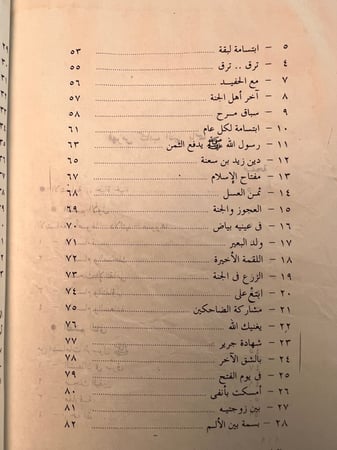 ٥ - ابتسامة لبقة ٥٣
٦ - ترق .. ترق ٥٥
٧ - مع الحفيد ٥٦
٨ - آخر أهل الجنة ٥٧
٩ - سباق مرح ٥٨
١٠ - ابتسامة لكل عام ٦١
١١ - رسول الله ﷺ يدفع الثمن ٦٣
١٢ - دين زيد بن سعنة ٦٥
١٣ - مفتاح الإسلام ٦٧
١٤ - ثمن العسل ٦٨
١٥ - العجوز والجنة ٦٩
١٦ - فى عينيه بياض ٧٠
١٧ - ولد البعير ٧١
١٨ - اللقمة الأخيرة ٧٢
١٩ - الزرع فى الجنة ٧٣
٢٠ - ابتع على ٧٤
٢١ - مشاركة الضاحكين ٧٥
٢٢ - يغنيك الله ٧٦
٢٣ - شهادة جرير ٧٧
٢٤ - بالشق الآخر ٧٨
٢٥ - فى يوم الفتح ٧٩
٢٦ - أمسكت بأنفى ٨٠
٢٧ - بين زوجتيه ٨١
٢٨ - بسمة بين الألم ٨٢